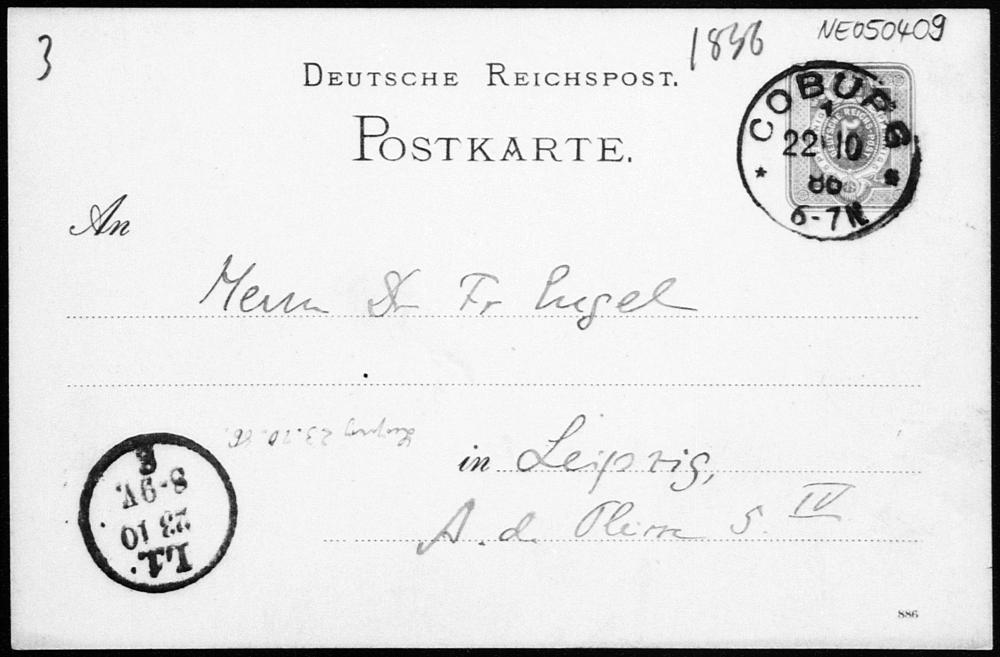 3
1836
NE050409
DEUTSCHE REICHSPOST.
POSTKARTE.
COBURG
1
22 10
86
6-7N
DEUTSCHE REICHS-POST
5
An
Herrn Dr Fr Engel
Leipzig 23.10.86.
in Leipzig,
A. d. Pleisse 5. IV
L.1.
23 10
8-9V.
886